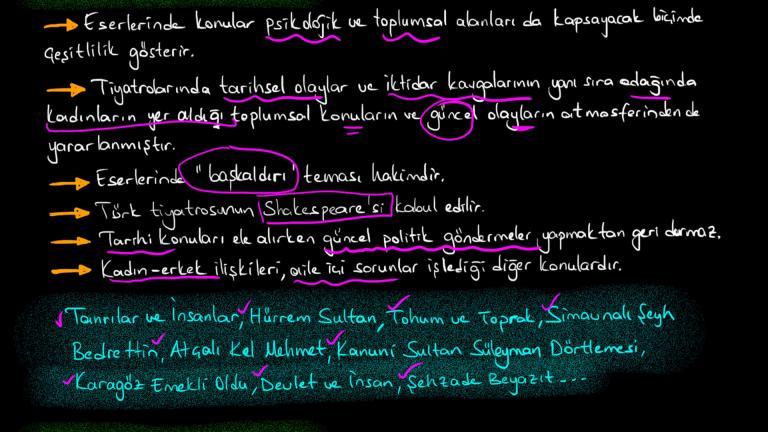 → Eserlerinde konular psikolojik ve toplumsal alanları da kapsayacak biçimde
çeşitlilik gösterir.
→ Tiyatrolarında tarihsel olaylar ve iktidar kavgalarının yanı sıra odağında
kadınların yer aldığı toplumsal konuların ve güncel olayların atmosferinden de
yararlanmıştır.
→ Eserlerinde "başkaldırı" teması hakimdir.
→ Türk tiyatrosunun Shakespeare'si kabul edilir.
→ Tarihi konuları ele alırken güncel politik göndermeler yapmaktan geri durmaz.
→ Kadın-erkek ilişkileri, aile içi sorunlar işlediği diğer konulardır.
Tanrılar ve İnsanlar, Hürrem Sultan, Tohum ve Toprak, Simavnalı Şeyh
Bedrettin, Atçalı Kel Mehmet, Kanuni Sultan Süleyman Dörtlemesi,
Karagöz Emekli Oldu, Devlet ve İnsan, Şehzade Beyazıt ---